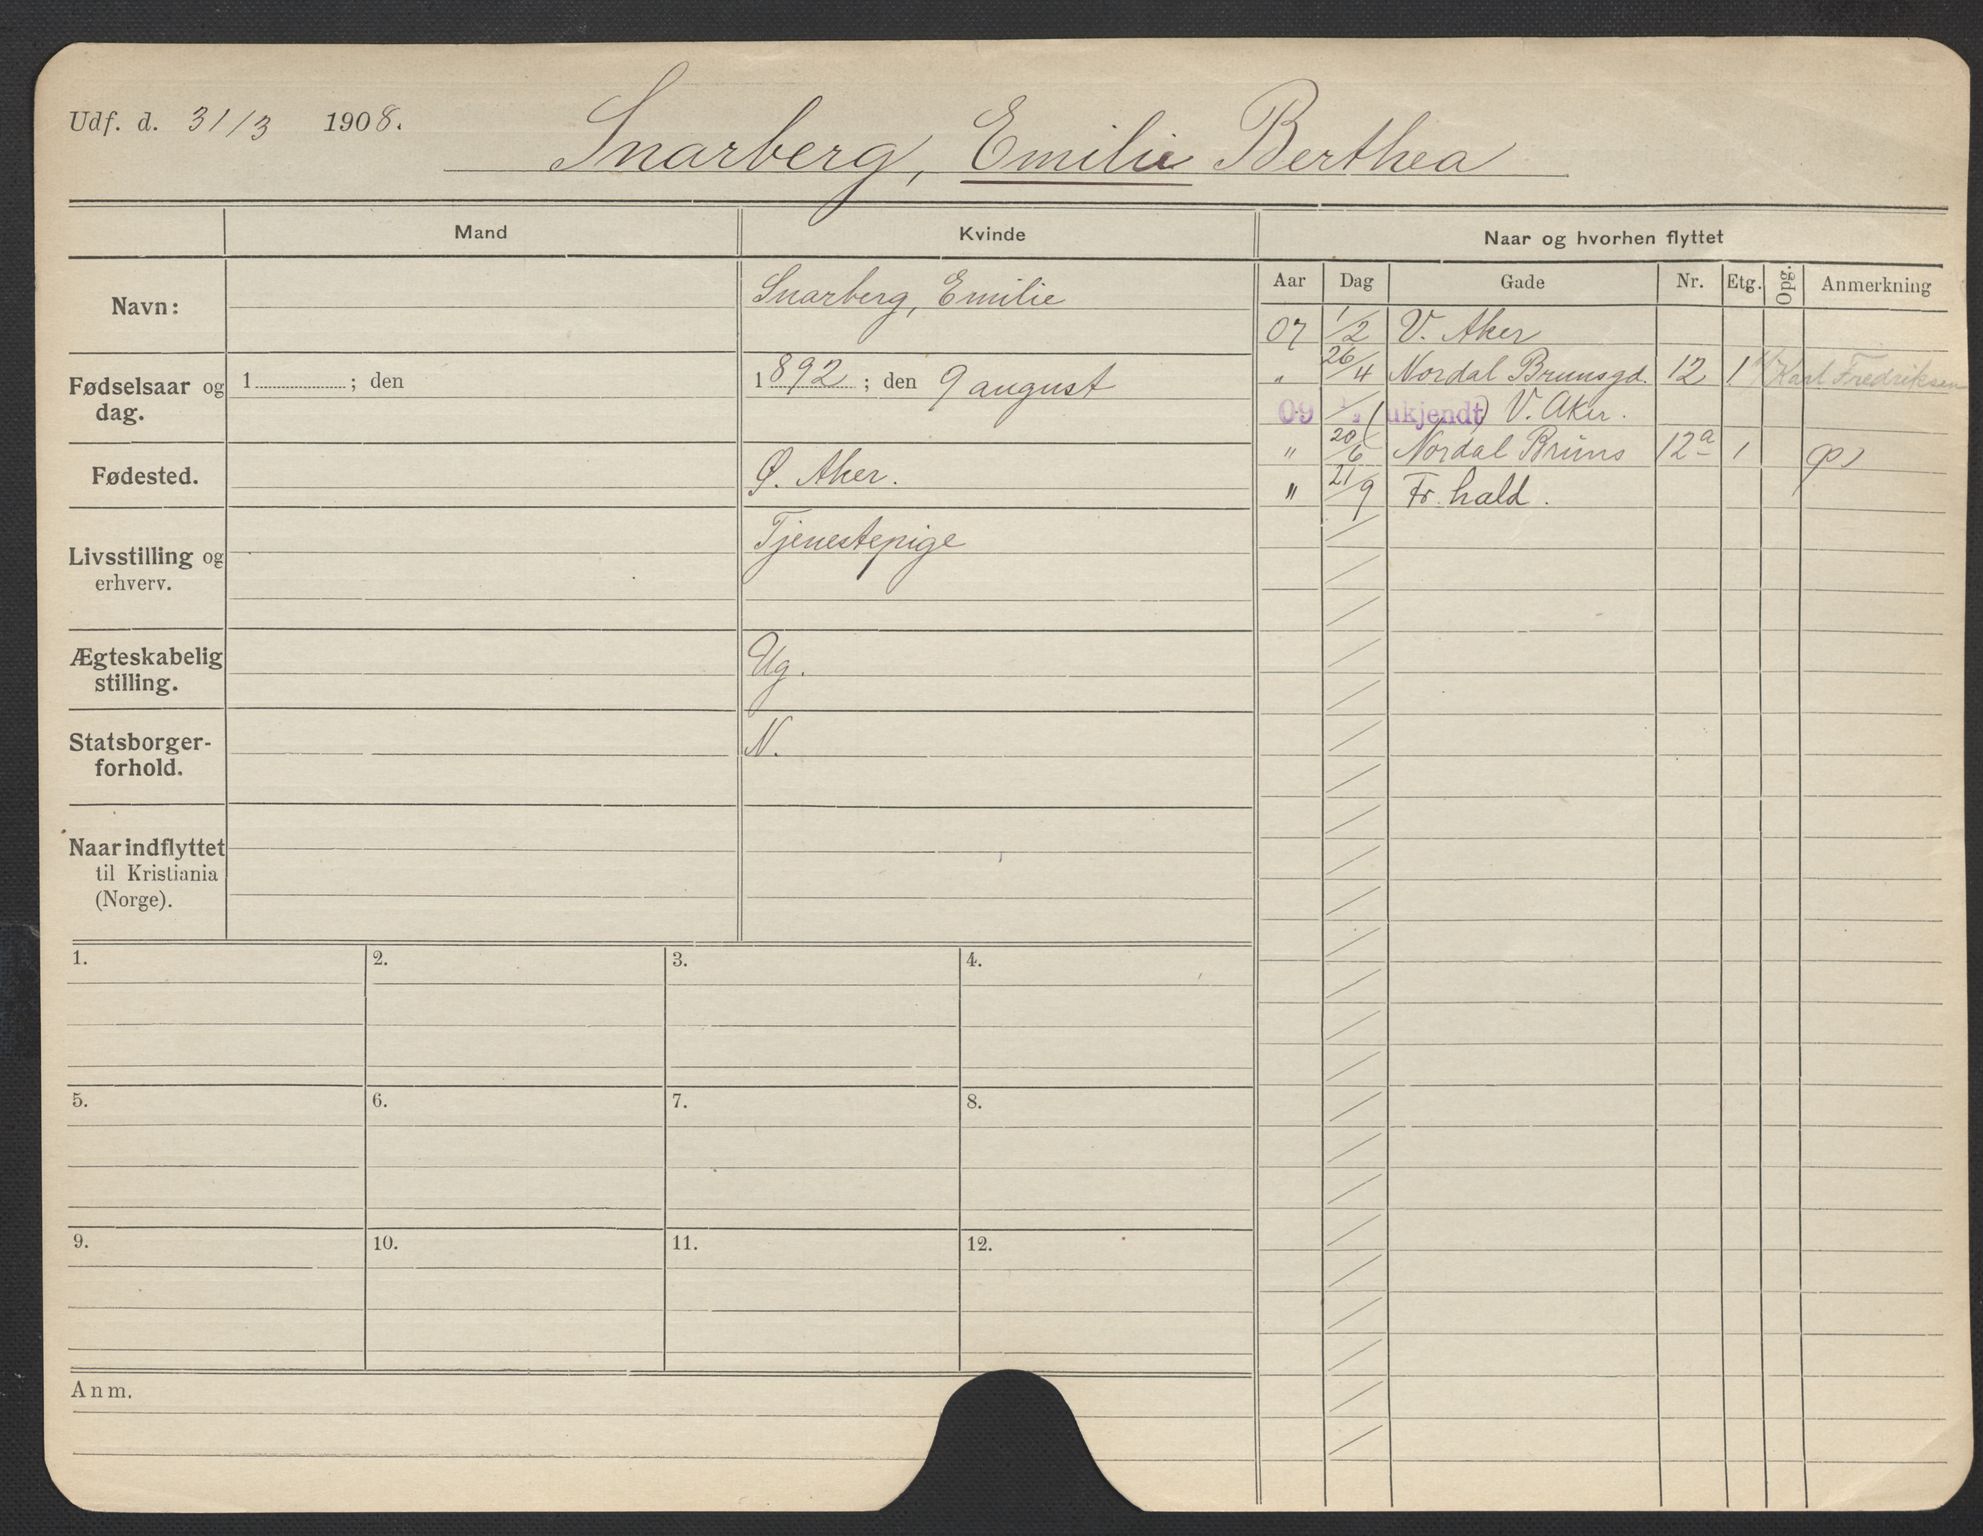 Udf. d. 31/3 1908. Snarberg, Emilie Berthea
Mand Kvinde Naar og hvorhen flyttet
Aar Dag Gade Nr. Etg. Opg. Anmerkning
Navn: Snarberg, Emilie
Fødselsaar og dag. 1 ; den 1892 ; den 9 august
Fødested. Ø. Aker.
Livsstilling og erhverv. Tjenestepige
Ægteskabelig stilling. Ug.
Statsborgerforhold. N.
Naar indflyttet til Kristiania (Norge).
07 1/2 V. Aker
" 26/4 Nordal Brunsgd. 12 1 Karl Fredriksen
09 1/2 (ukjendt) V. Aker.
" 20/6 Nordal Bruns 12a 1
" 21/9 Fr.hald.
1. 2. 3. 4.
5. 6. 7. 8.
9. 10. 11. 12.
Anm.